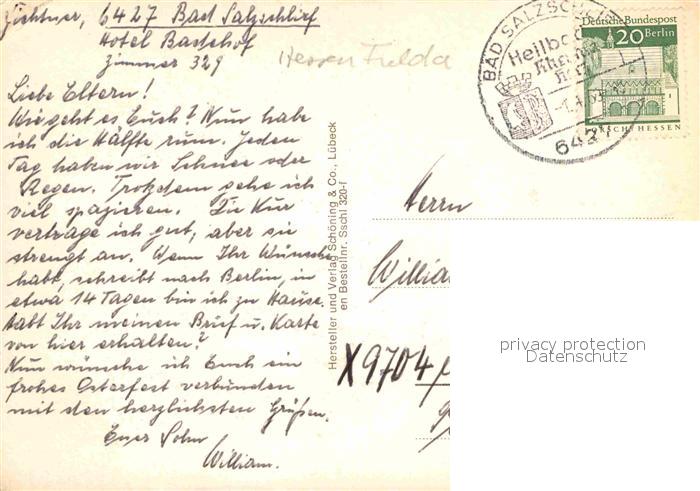 Züchtner, 6427 Bad Salzschlirf
Hotel Badehof
Zimmer 329
Hessen Fulda
Liebe Eltern!
Wie geht es Euch? Nun habe
ich die Hälfte rum. Jeden
Tag haben wir Schnee oder
Regen. Trotzdem gehe ich
viel spazieren. Die Kur
vertrage ich gut, aber sie
strengt an. Wenn Ihr Wünsche
habt, schreibt nach Berlin, in
etwa 14 Tagen bin ich zu Hause.
Habt Ihr meinen Brief u. Karte
von hier erhalten?
Nun wünsche ich Euch ein
frohes Osterfest verbunden
mit den herzlichsten Grüßen.
Euer Sohn
William.
Hersteller und Verlag Schöning & Co., Lübeck
en Bestellnr. Sschl 320-f
BAD SALZSCHLIRF
Heilbad
6427
Deutsche Bundespost
20 Berlin
LORSCH/HESSEN
Herrn
William
X9704
privacy protection
Datenschutz